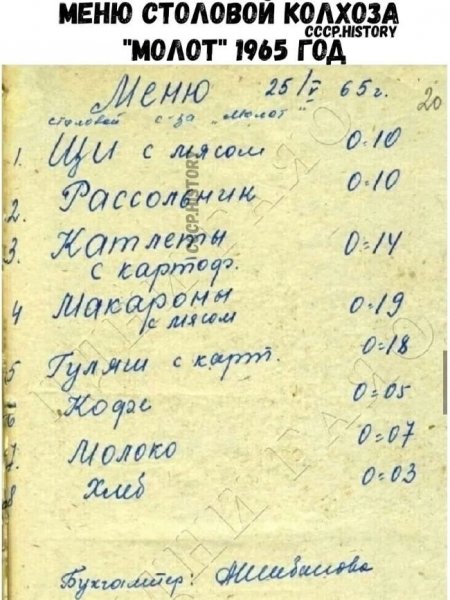 МЕНЮ СТОЛОВОЙ КОЛХОЗА
CCCP.HISTORY
"МОЛОТ" 1965 ГОД
Меню 25/V 65 г. 20
столовой с-за "Молот"
1. Щи с мясом 0=10
2. Рассольник 0=10
3. Катлеты 0=14
с картоф.
4 Макароны 0=19
с мясом
5 Гуляш с карт. 0=18
6 Кофе 0=05
7. Молоко 0=07
8 Хлеб 0=03
CCCP.HISTORY
Бухгалтер: